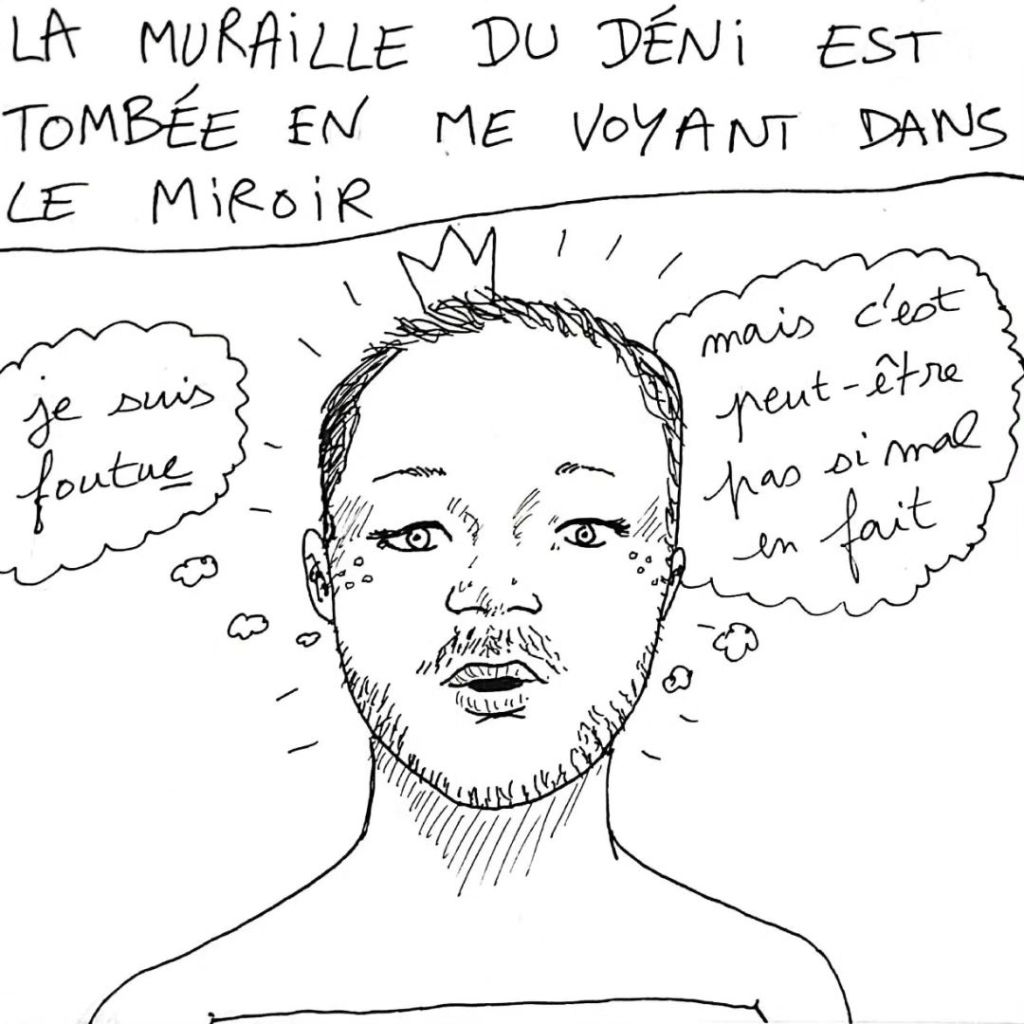 LA MURAILLE DU DÉNI EST
TOMBÉE EN ME VOYANT DANS
LE MIROIR
je suis
foutue
mais c'est
peut-être
pas si mal
en fait